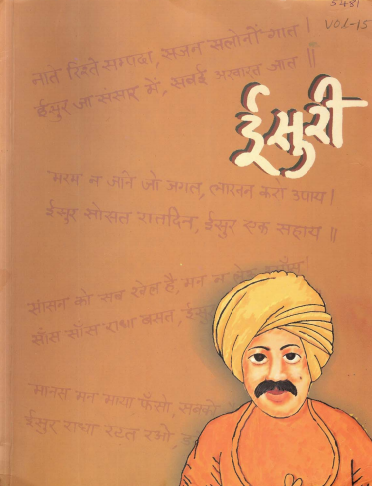 5431
VOL-15
नाते रिश्ते सम्पदा, सजन सलोनों गात।
ईसुर जा संसार में, सबई अखारत जात॥
ईसुरी
मरम न जानें जो जगत, लाखन करौ उपाय।
ईसुर सोसत रातदिन, ईसुर एक सहाय॥
सांसन कौ सब खेल है, मन न
साँस साँस राधा बसत,
मानस मन माया फँसो,
ईसुर राधा रटत रओ,